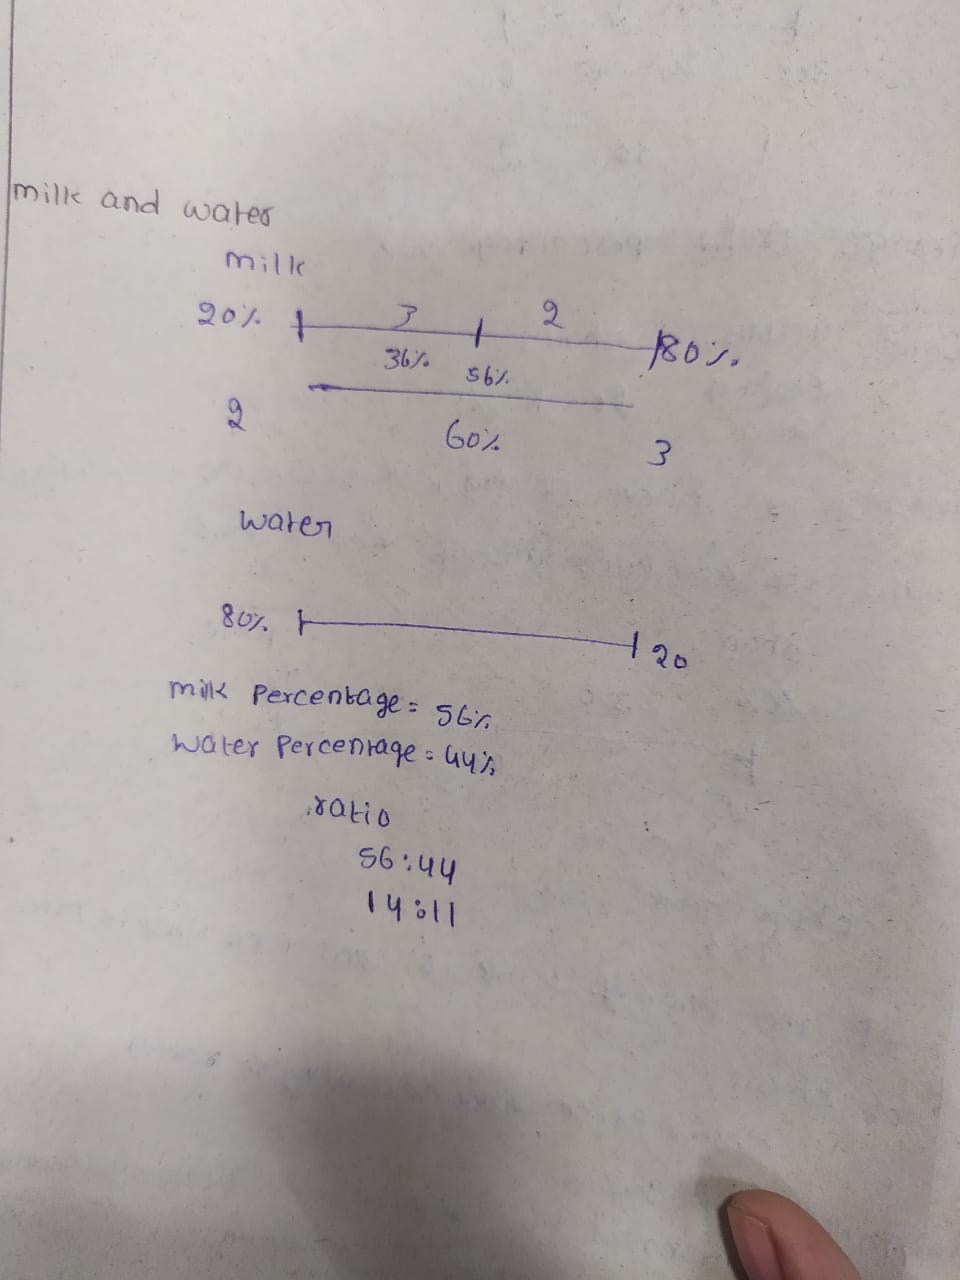 milk and water
milk
20% 3 2 80%
36% 56%
2 60% 3
water
80% 20
milk percentage = 56%
water percentage = 44%
ratio
56:44
14:11